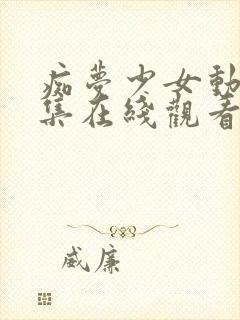 痴夢少女動
集在綫觀看
威廉